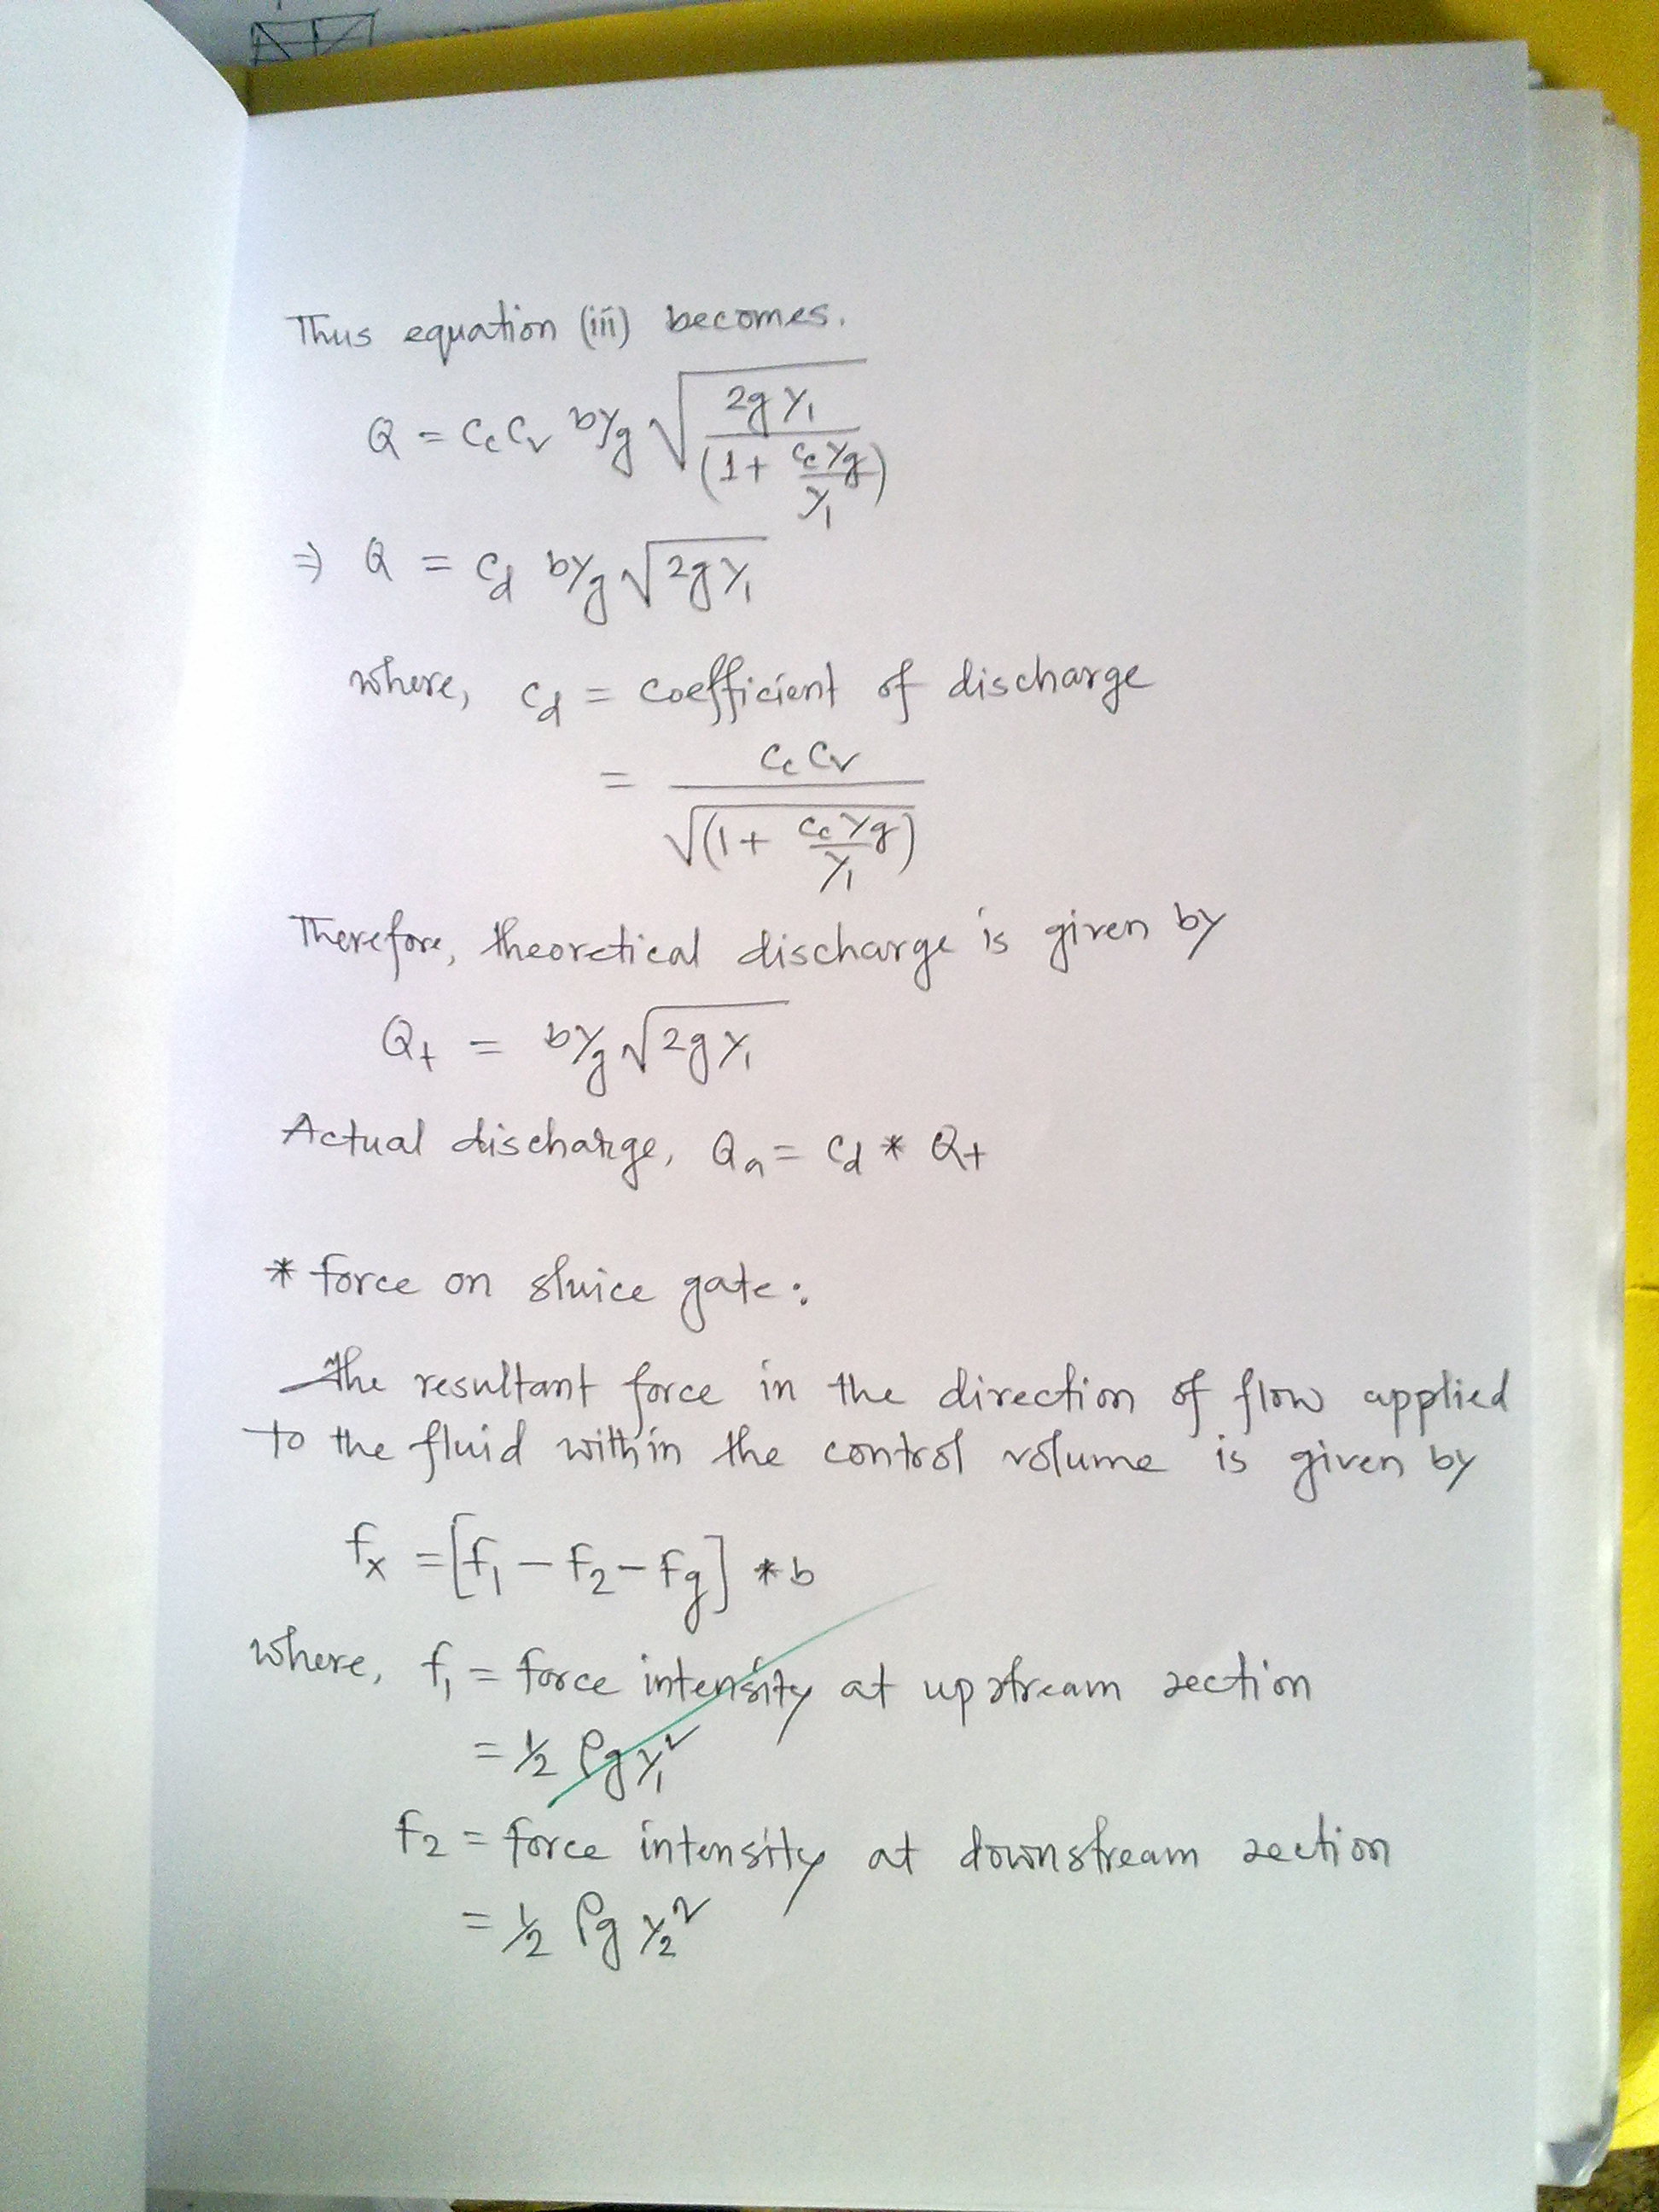 Thus equation (iii) becomes.
Q = Cc Cv b Yg √(2g Y₁ / (1 + Cc Yg / Y₁))
⇒ Q = Cd b Yg √(2g Y₁)
where, Cd = coefficient of discharge
= Cc Cv / √(1 + Cc Yg / Y₁)
Therefore, theoretical discharge is given by
Qt = b Yg √(2g Y₁)
Actual discharge, Qa = Cd * Qt
* Force on sluice gate:
The resultant force in the direction of flow applied
to the fluid within the control volume is given by
Fx = [F₁ - F₂ - Fg] * b
where, F₁ = Force intensity at upstream section
= ½ ρg Y₁²
F₂ = Force intensity at downstream section
= ½ ρg Y₂²